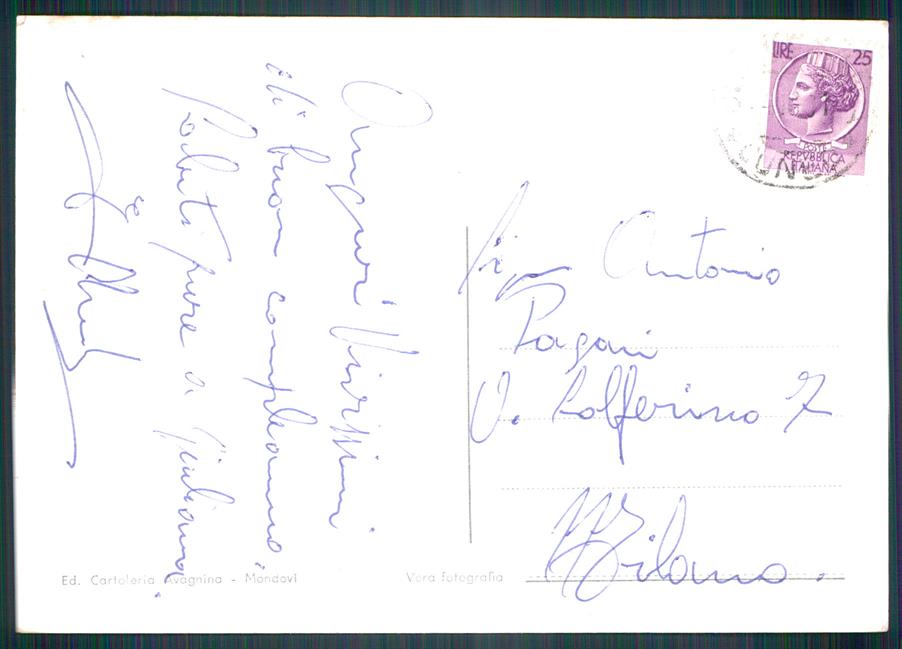 Auguri Vivissimi
di buon compleanno,
Saluti pure a Giuliana.
LIRE 25
POSTE
REPVBBLICA
ITALIANA
CUNEO
Sig. Antonio
Pagani
V. Solferino 7
Milano.
Ed. Cartoleria Avagnina - Mondovì
Vera fotografia